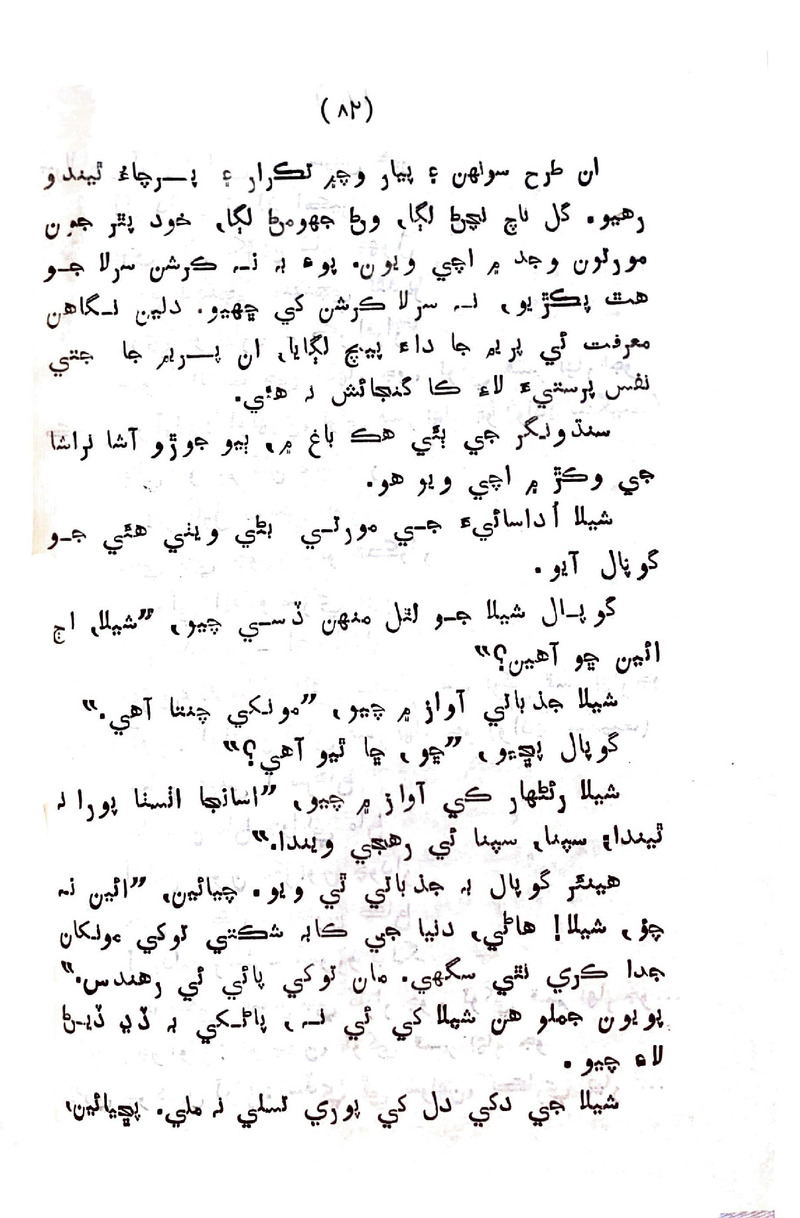 (۸۲)
ان طرح سونهن ۽ پيار وچ۾ تڪرار ۽ پرچاءُ ٿيندو
رهيو. گل ناچ نچڻ لڳا، وڻ جهومڻ لڳا، خود پٿر جون
مورتون وجد ۾ اچي ويون. پوءِ به نہ ڪرشن سرلا جو
هٿ پڪڙيو، نہ سرلا ڪرشن کي ڇهيو. دلين نگاهن
معرفت ئي پريم جا داءَ پيچ لڳايا، ان پريم جا جتي
نفس پرستيءَ لاءِ ڪا گنجائش نہ هئي.
سنڌونگر جي ٻئي هڪ باغ ۾، ٻيو جوڙو آشا نراشا
جي وڪڙ ۾ اچي ويو هو.
شيلا اُداسائيءَ جي مورتي بڻي ويٺي هئي جو
گوپال آيو.
گوپال شيلا جو لٿل منهن ڏسي چيو، ”شيلا، اڄ
ائين ڇو آهين؟“
شيلا جذباتي آواز ۾ چيو، ”مونکي چنتا آهي.“
گوپال پڇيو، ”ڇو، ڇا ٿيو آهي؟“
شيلا رئڻهار ڪي آواز ۾ چيو، ”اسانجا اتسنا پورا نہ
ٿيندا؛ سپنا، سپنا ئي رهجي ويندا.“
هينئر گوپال بہ جذباتي ٿي ويو. چيائين، ”ائين نہ
چؤ، شيلا! هاڻي، دنيا جي ڪابہ شڪتي توکي مونکان
جدا ڪري نٿي سگهي. مان توکي پائي ئي رهندس.“
پويون جملو هن شيلا کي ئي نہ، پاڻکي بہ ڏڍ ڏيڻ
لاءِ چيو.
شيلا جي دکي دل کي پوري تسلي نہ ملي. پڇيائين،